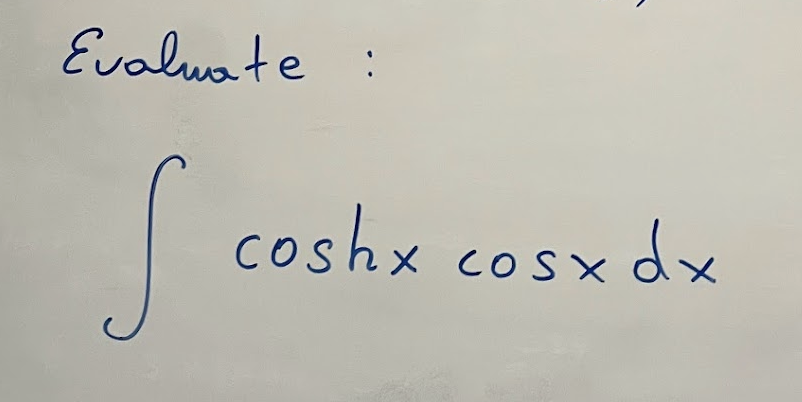 Evaluate :
∫ coshx cosx dx